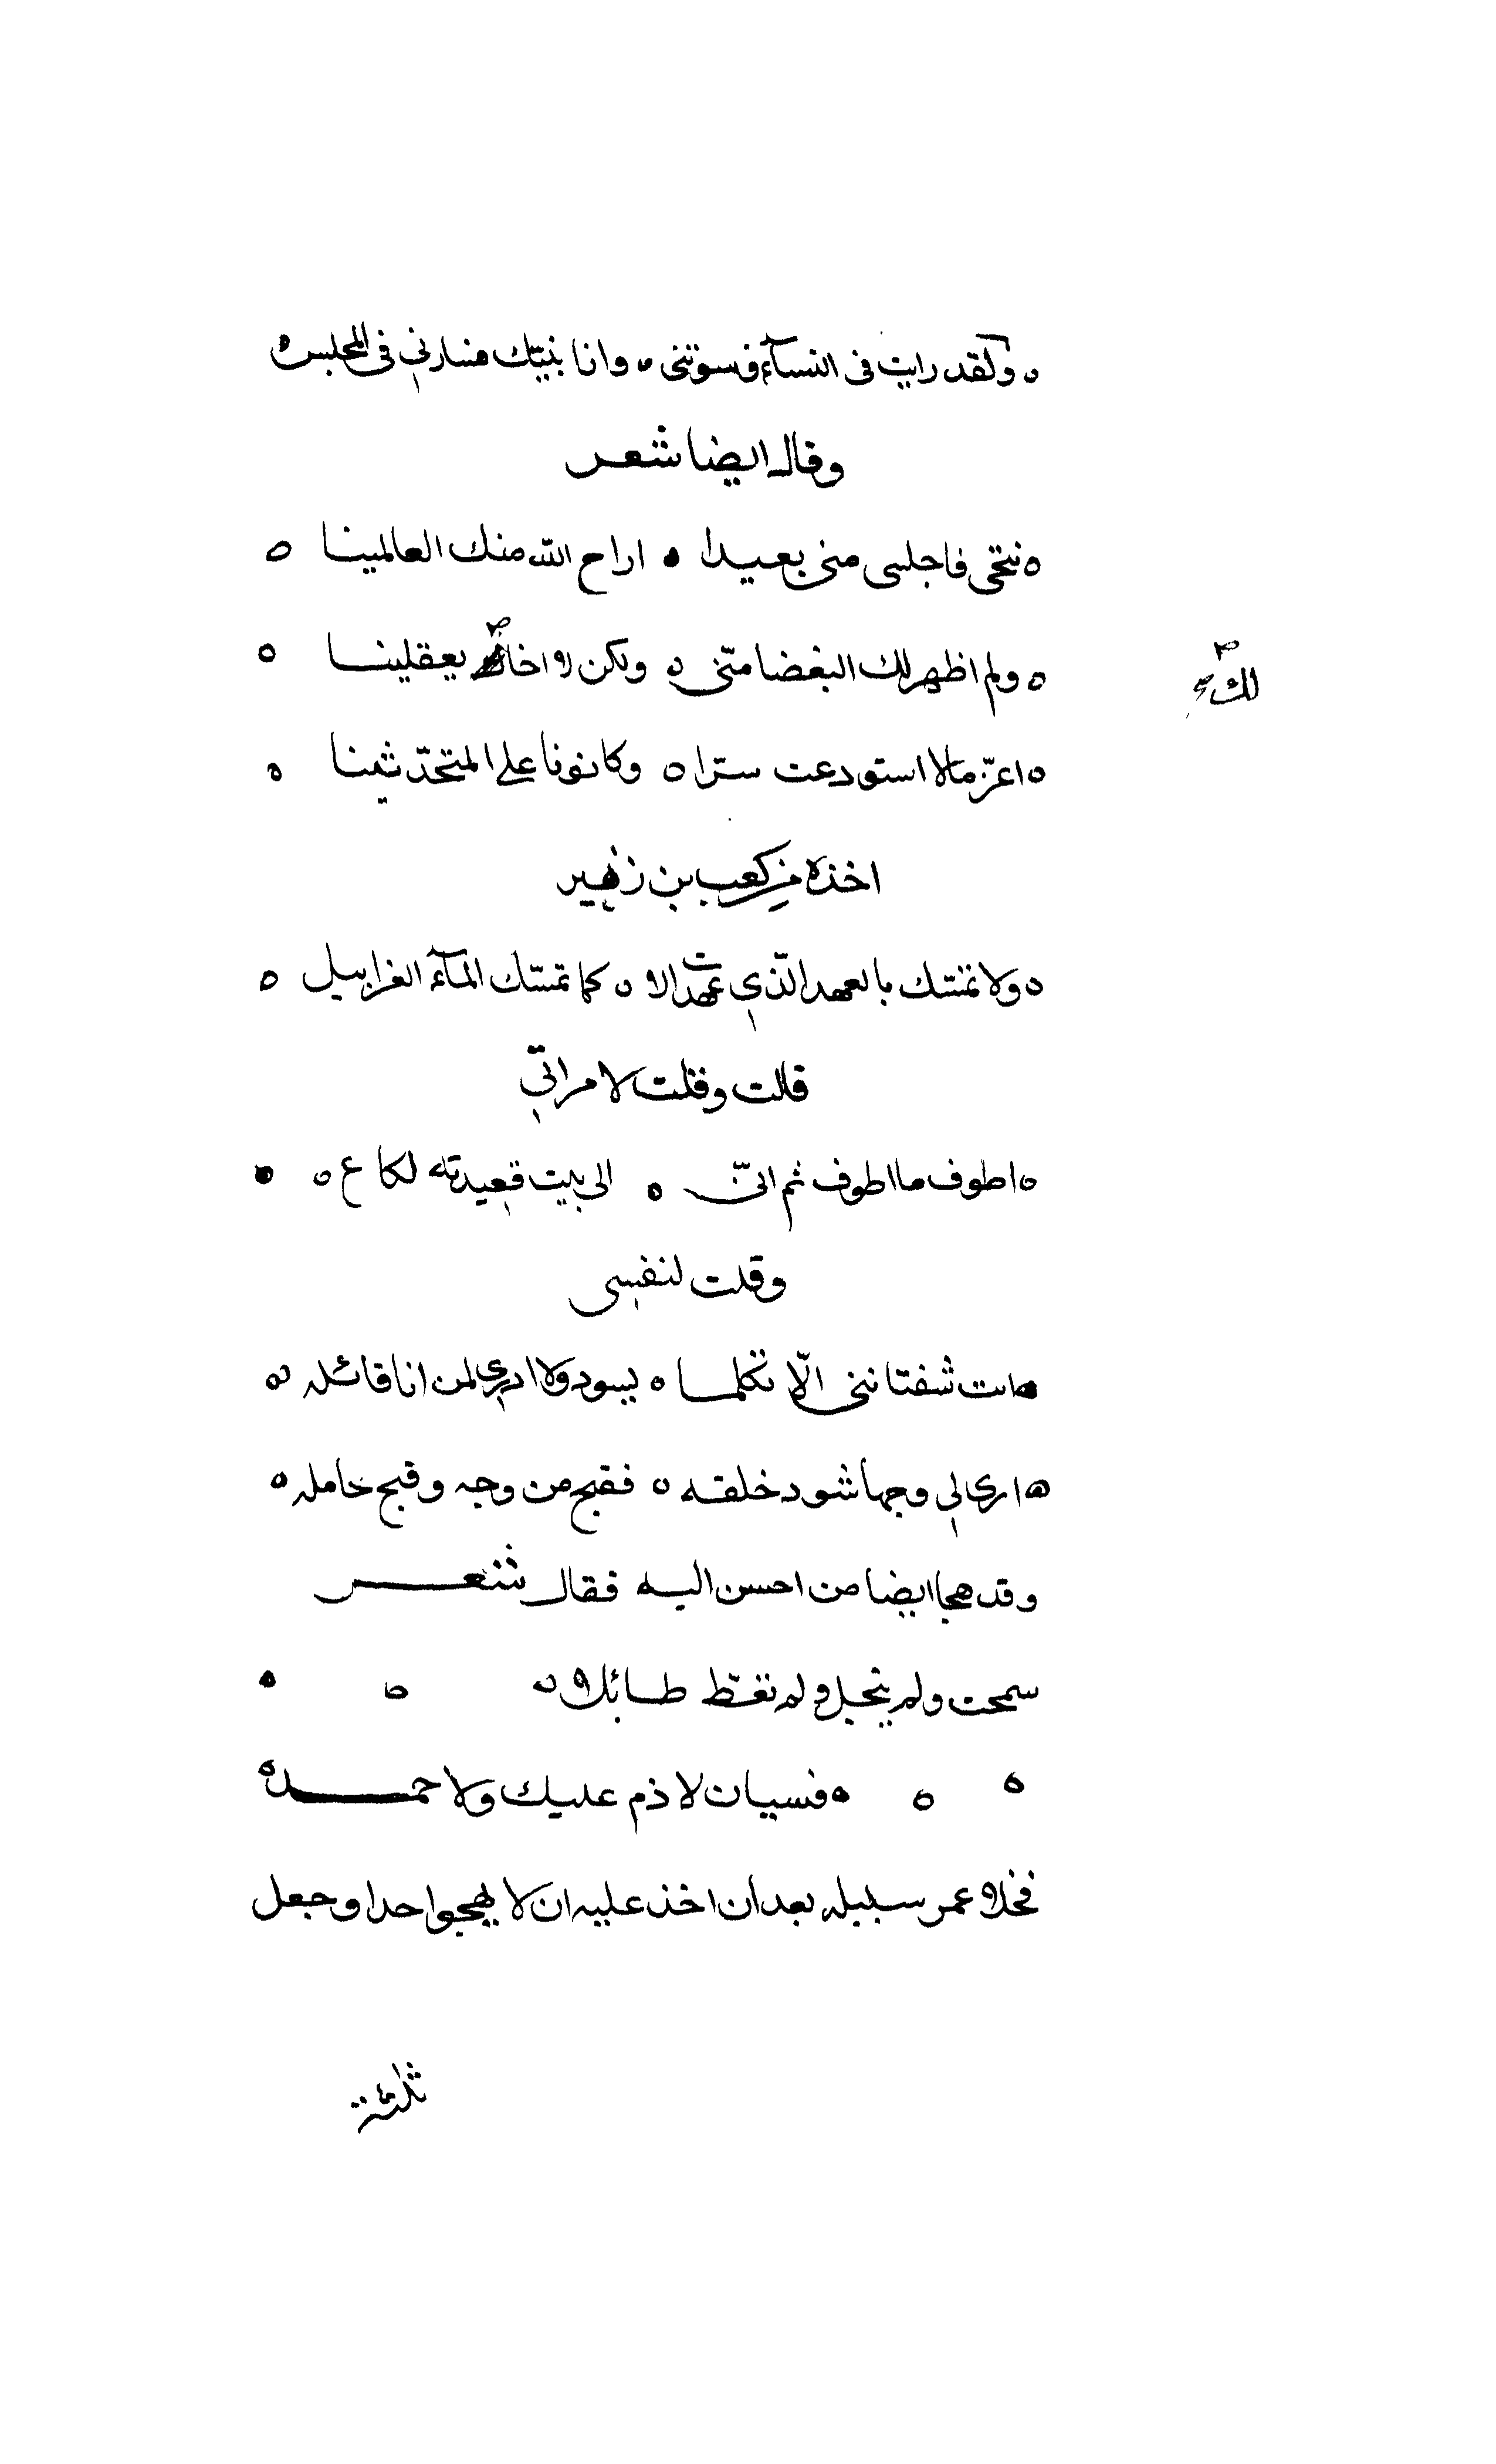 ولقد رايت في النسآء فسوتني ه وانا بنيتك فنسارني في المجلس ه
وقال ايضا شعر
ه تنحي فاجلسي مني بعيدا ه اراح الله منك العالمينا ه
ه ولم اظهر لك البغضا متي ه ولكن لا اخالك يعقلينا ه
لك
ه اعز مالا استودعت سترا ه وكانونا على المتحدّثينا ه
اخذه من كعب بن زهير
ه ولا تمسّك بالعهد الّذي عهدت الا ه كما تمسّك المآء الغرابيل ه
قالت وقلت لامراتي
ه اطوف ما اطوف ثم اتيّ ه الى بيت قعيدته لكاع ه
وقلت لنفسي
ه ابت شفتا نني الّا تكلما ه بسود ولا ادري لمن انا قائله ه
ه ارى لي وجها شود خلقه ه فقبح من وجه وقبح خامله ه
وقد هجا ايضا من احسن اليه فقال شعر
سمحت ولم يبخل ولم تغط طائلا ه
ه فسيان لا ذم عليك ولا حمد ه
فخلا عمر سبيله بعد ان اخذ عليه ان لا يهجوا احدا وجعل
ثلثة